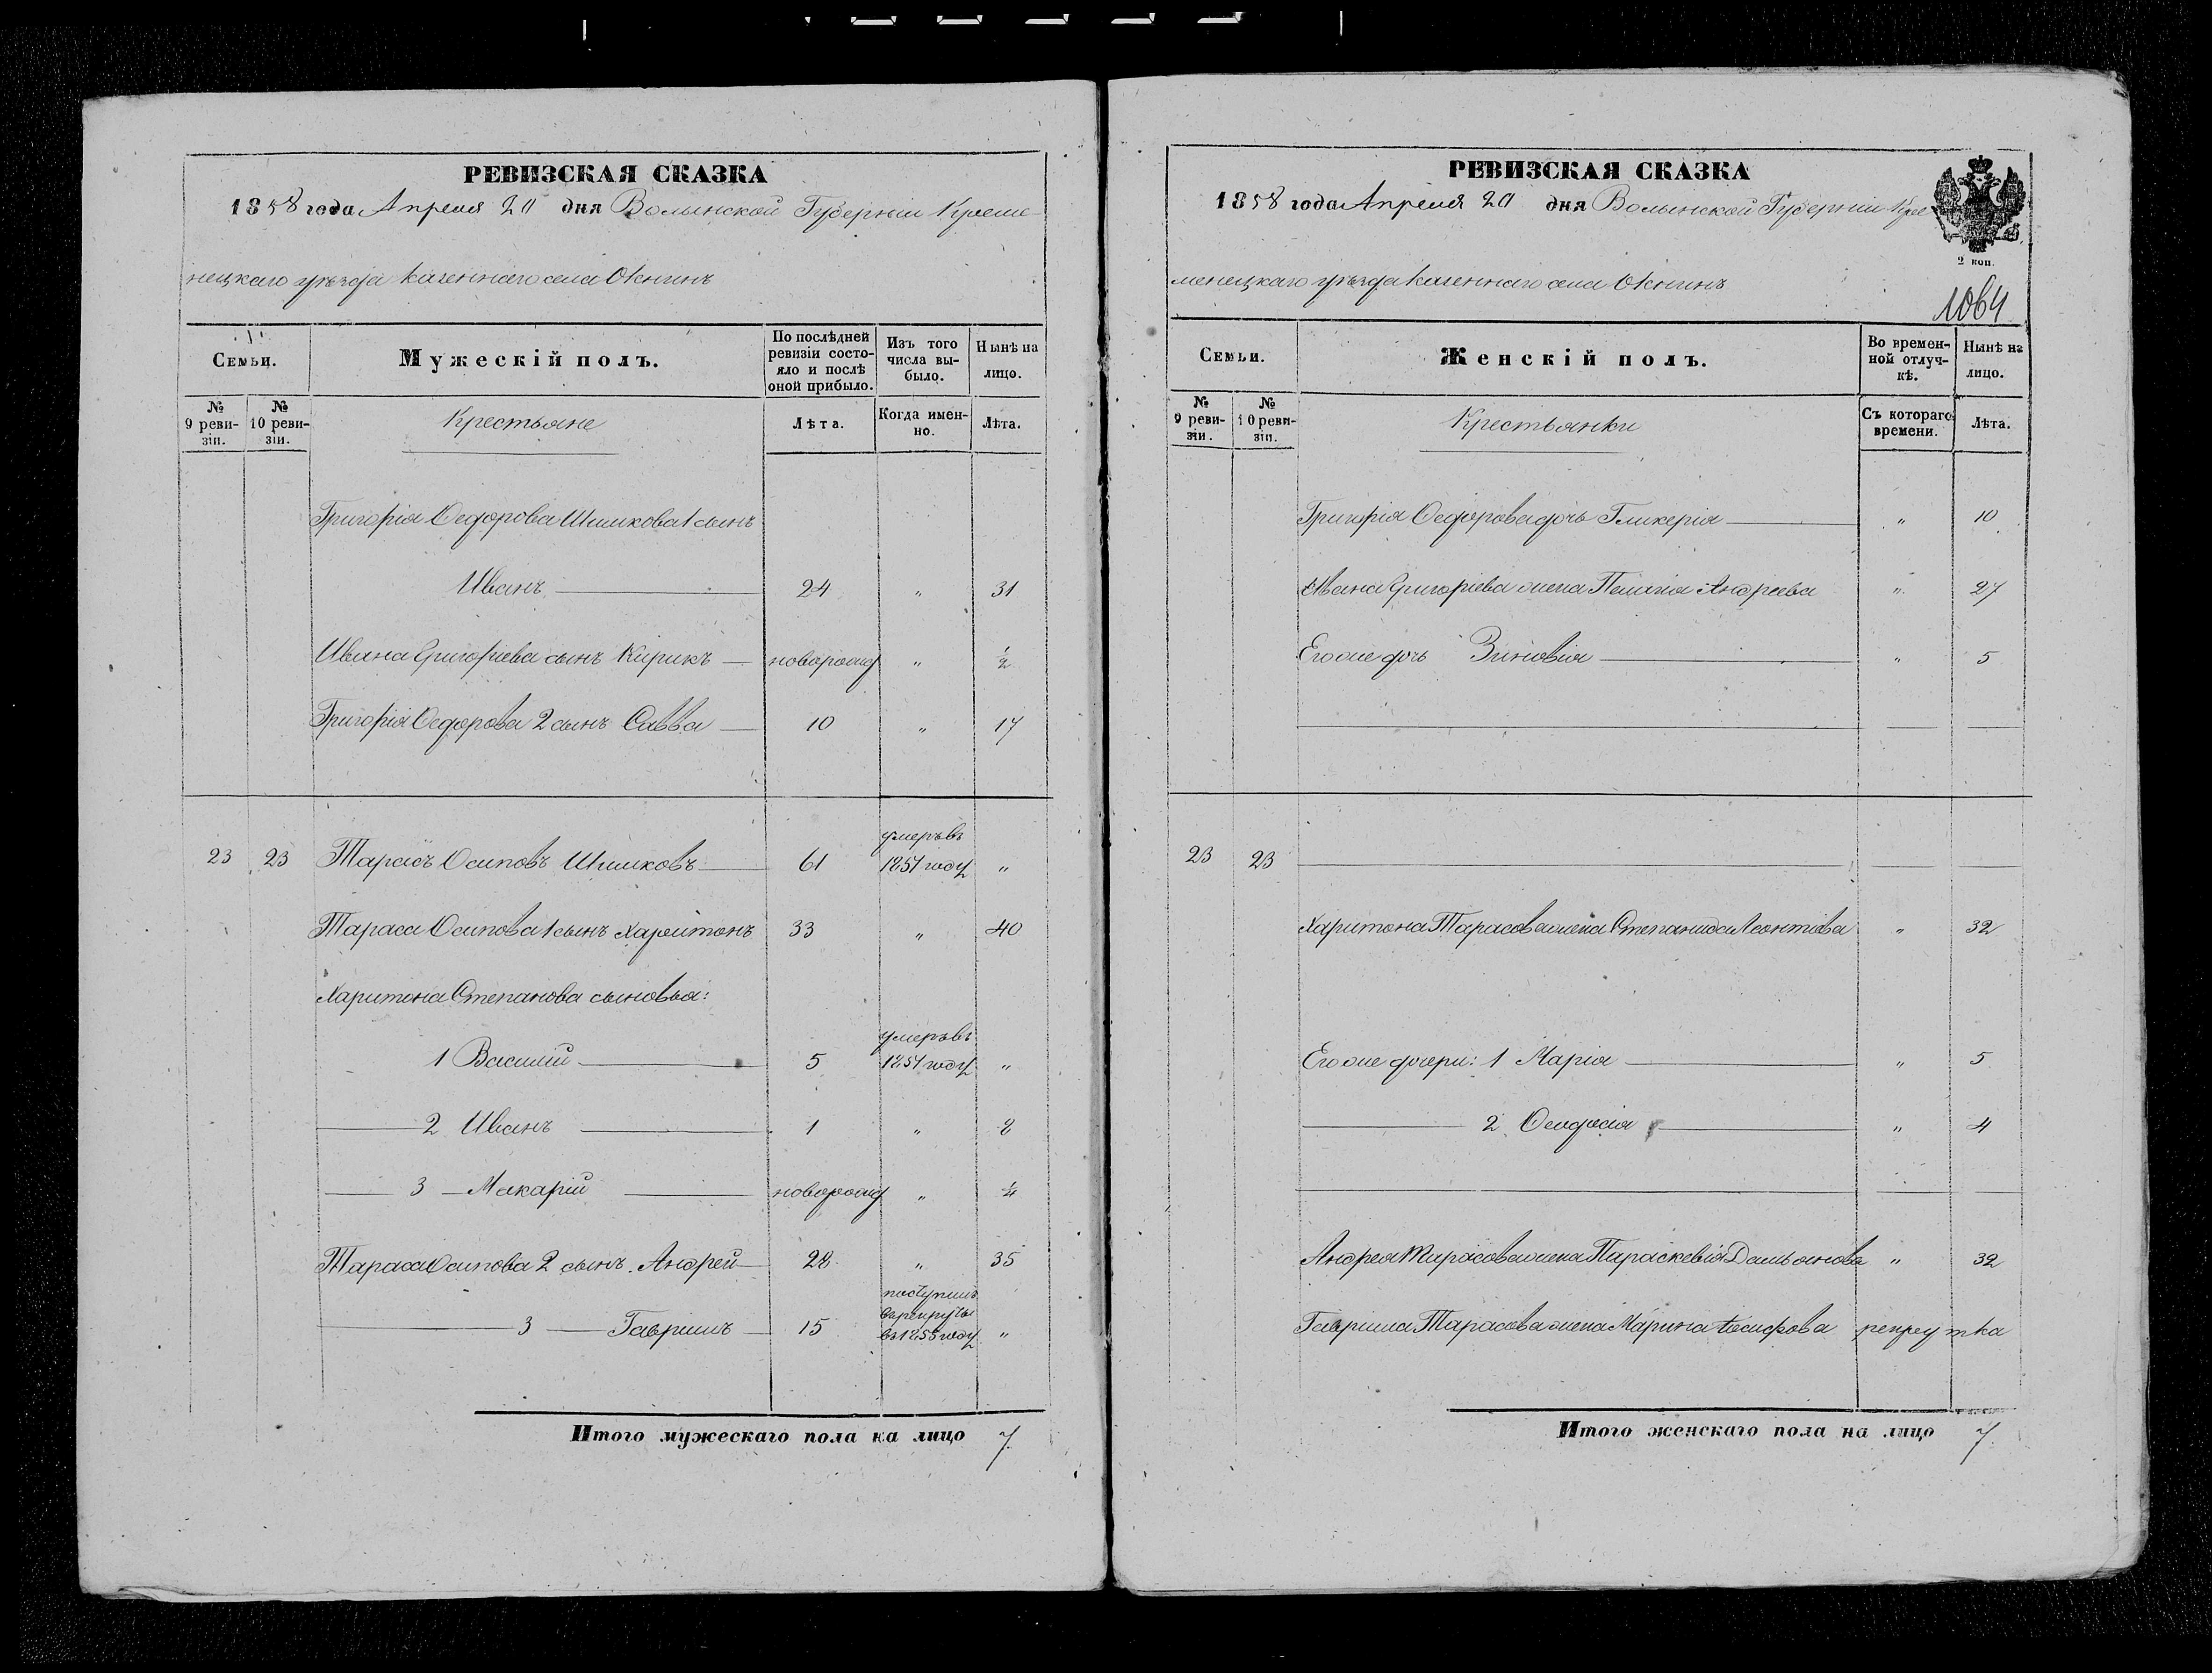 РЕВИЗСКАЯ СКАЗКА
1858 года Апреля 20 дня Волынской Губерніи Креме-
нецкаго уѣзда казеннаго села Окнинъ
Семьи.
Мужескій полъ.
По послѣдней ревизіи состояло и послѣ оной прибыло.
Изъ того числа выбыло.
Нынѣ на лицо.
№ 9 ревизіи.
№ 10 ревизіи.
Крестьяне
Лѣта.
Когда именно.
Лѣта.
Григорія Федорова Шишкова 1 сынъ
Иванъ 24 " 31
Ивана Григоріева сынъ Кирикъ новорожд " ½
Григорія Федорова 2 сынъ Савва 10 " 17
23 23 Тарасъ Осиповъ Шишковъ 61 умеръ въ 1851 году "
Тараса Осипова 1 сынъ Харитонъ 33 " 40
Харитона Степанова сыновья:
1 Василій 5 умеръ въ 1851 году "
2 Иванъ 1 " 8
3 Макарій новорожд " ¼
Тараса Осипова 2 сынъ Андрей 28 " 35
3 Гаврилъ 15 поступилъ въ рекруты въ 1855 году "
Итого мужескаго пола на лицо 7.
РЕВИЗСКАЯ СКАЗКА
1858 года Апреля 20 дня Волынской Губерніи Кре
менецкаго уѣзда казеннаго села Окнинъ
2 коп.
1064
Семьи.
Женскій полъ.
Во временной отлучкѣ.
Нынѣ на лицо.
№ 9 ревизіи.
№ 10 ревизіи.
Крестьянки
Съ котораго времени.
Лѣта.
Григорія Федорова дочь Гликерія " 10
Ивана Григоріева жена Пелагія Андреева " 27
Его же дочь Зиновія " 5
23 23
Харитона Тарасова жена Степанида Леонтіева " 32
Его же дочери: 1 Марія " 5
2 " 4
Андрея Тарасова жена Параскевія Дамьянова " 32
Гаврила Тарасова жена Марина Іосифова рекрутка
Итого женскаго пола на лицо 7.